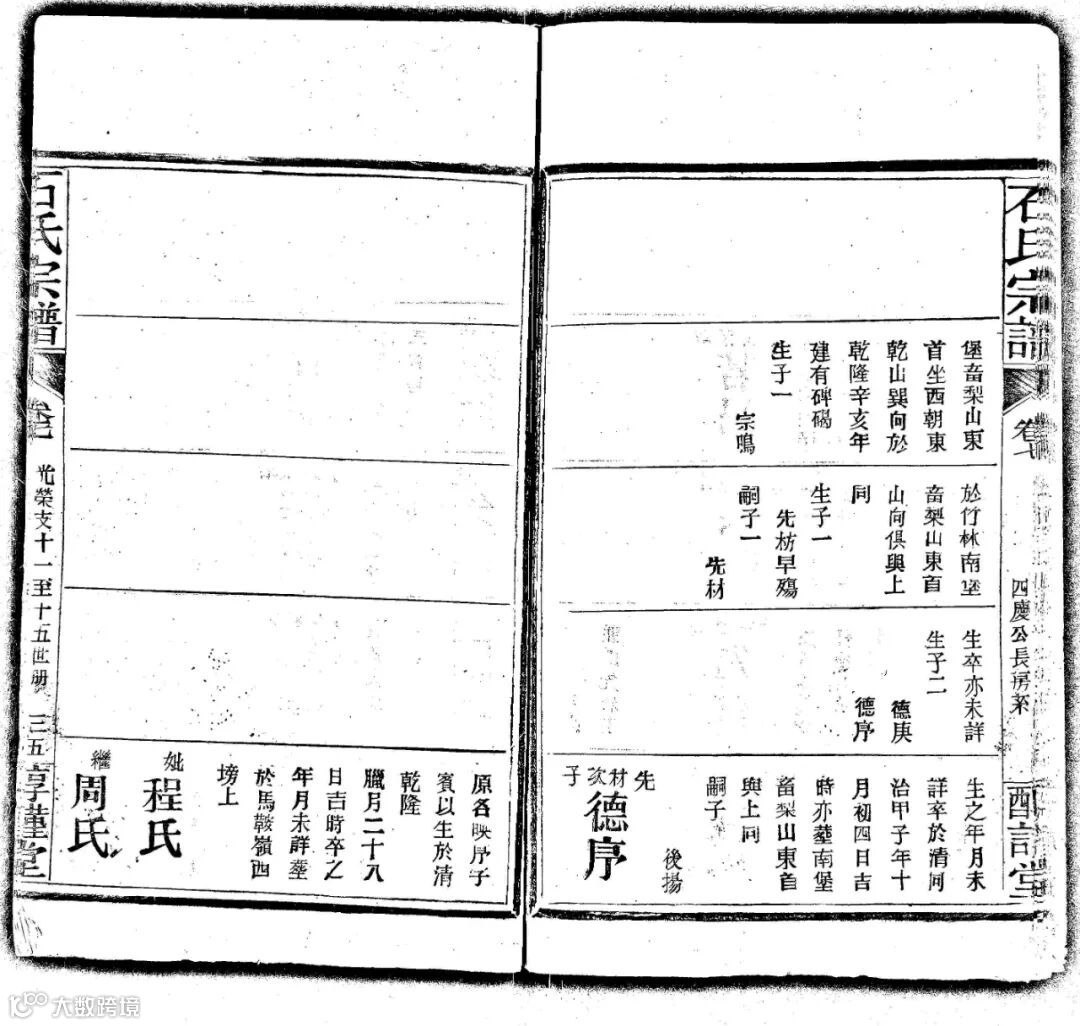 石氏宗譜
卷七
四慶公長房系
堡畜梨山東
首坐西朝東
乾山巽向於
乾隆辛亥年
建有碑碣
生子一
宗鳴
於竹林南堡
畜梨山東首
山向俱與上
同
生子一
先枋早殤
嗣子一
先材
生卒亦未詳
生子二
德庚
德序
生之年月未
詳卒於清同
治甲子年十
月初四日吉
時亦塟南堡
畜梨山東首
與上同
嗣子
後揚
先材次子
德序
原名映序子
賓以生於清
乾隆
臘月二十八
日吉時卒之
年月未詳塟
於馬鞍嶺西
塝上
妣
程氏
繼
周氏
石氏宗譜
光榮支十一至十五世册
三五
大数跨境